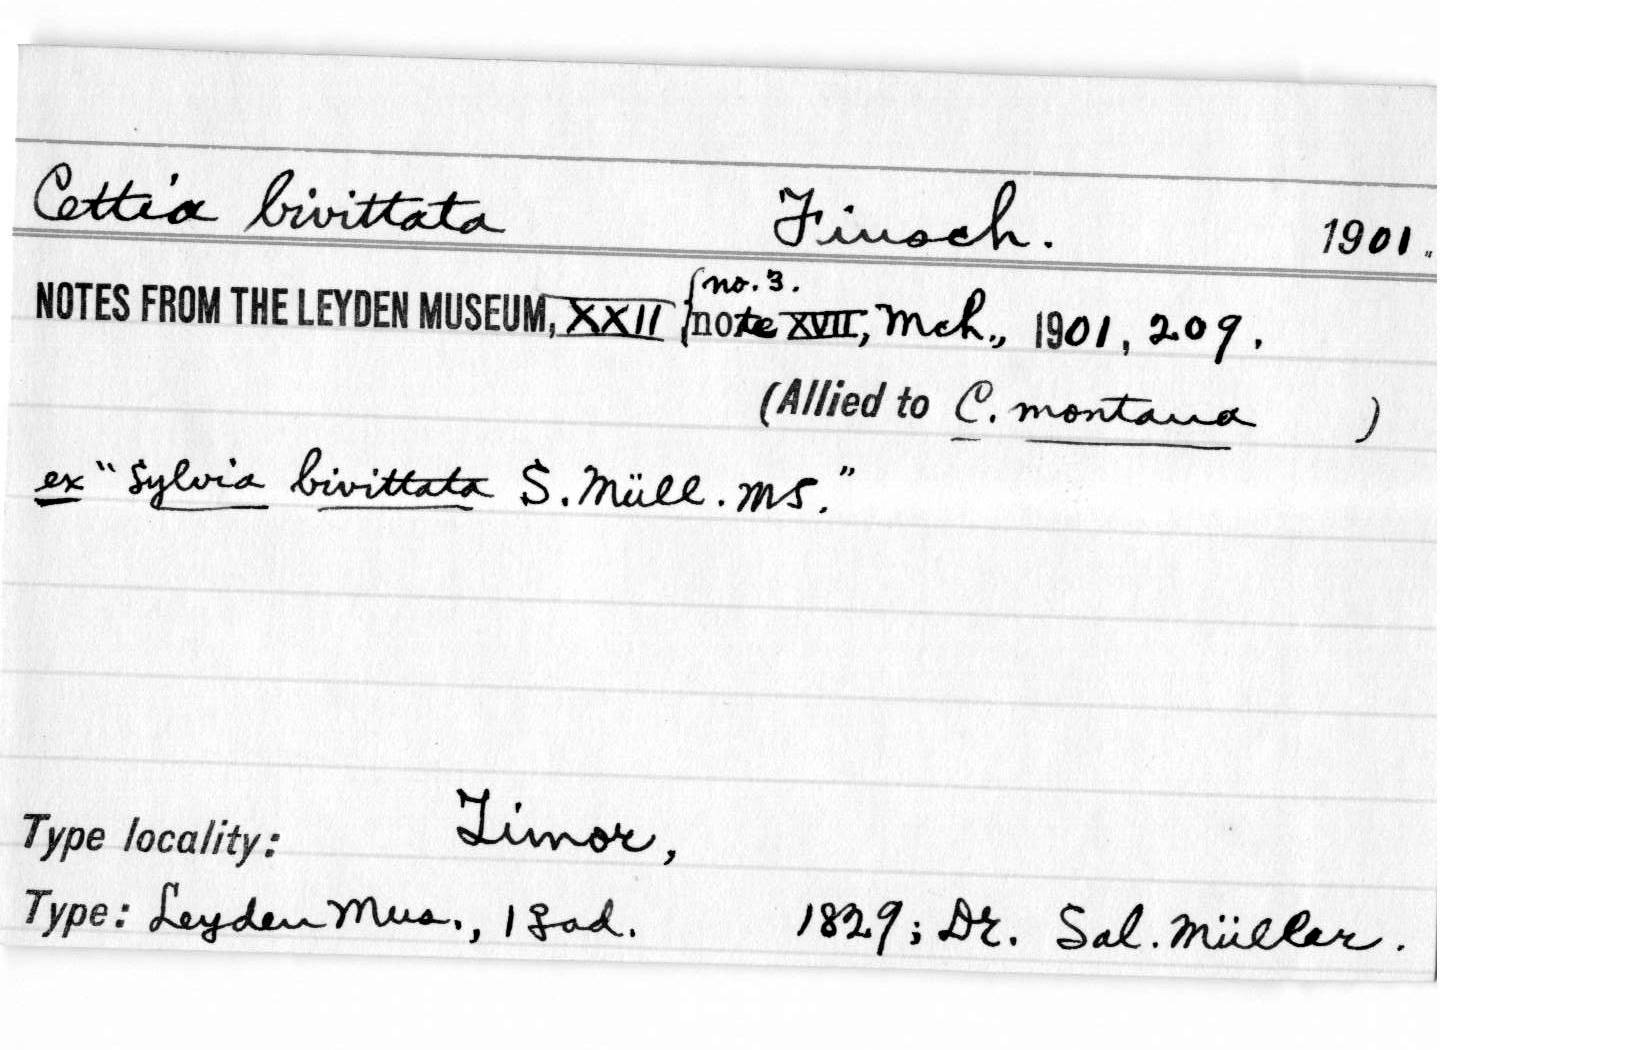 Cettia bivittata Finsch. 1901.
NOTES FROM THE LEYDEN MUSEUM, XXII { no. 3.
note XVII, Mch., 1901, 209.
(Allied to C. montana )
ex "Sylvia bivittata S. Müll. MS."
Type locality: Timor,
Type: Leyden Mus., 1 ad. 1829; Dr. Sal. Müller.